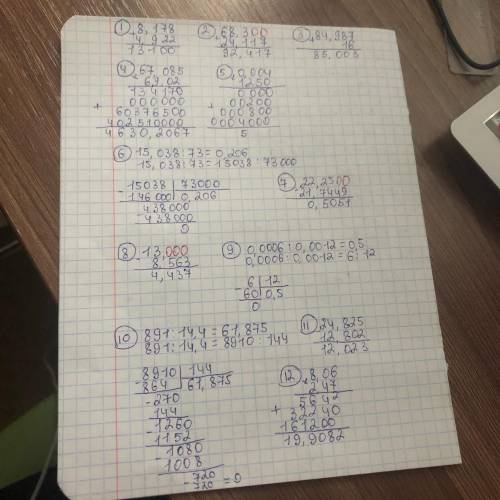 1 8,178
4,922
13100
2 68,300
24,117
92,417
3 84,987
16
85,003
4 67,085
69,02
134170
000000
+ 60376500
402510000
4630,2067
5 0,004
1250
0,000
+ 00200
000800
0004000
5
6 15,038:73=0,206
15,038:73=15038:73000
- 15038 73000
146000 0,206
438000
- 438000
0
7 22,2500
21,7449
0,5051
8 13,000
8,563
4,437
9 0,0006:0,0012=0,5
0,0006:0,0012=6:12
6 12
- 60 0,5
0
10 891:14,4=61,875
891:14,4=8910:144
8910 144
- 864 61,875
- 270
144
- 1260
1152
1080
1008
- 720
720 = 0
11 24,825
12,802
12,023
12 8,06
2,47
5642
+ 32240
161200
19,9082